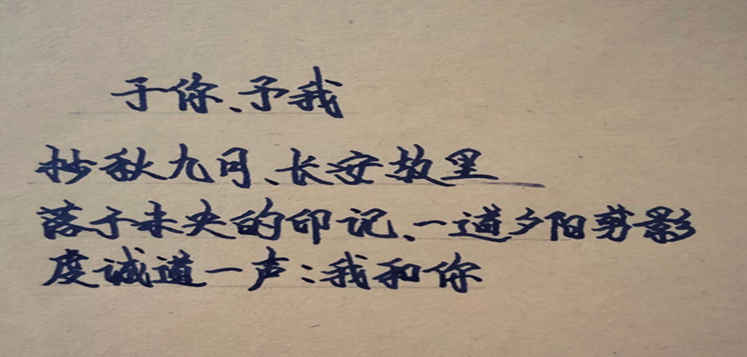 于你、予我
抄秋九月、长安故里
落于未央的印记、一道夕阳剪影
度诚道一声:我和你